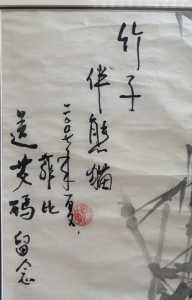 竹子
伴熊猫
二〇〇七年夏
比
送艾玛留念